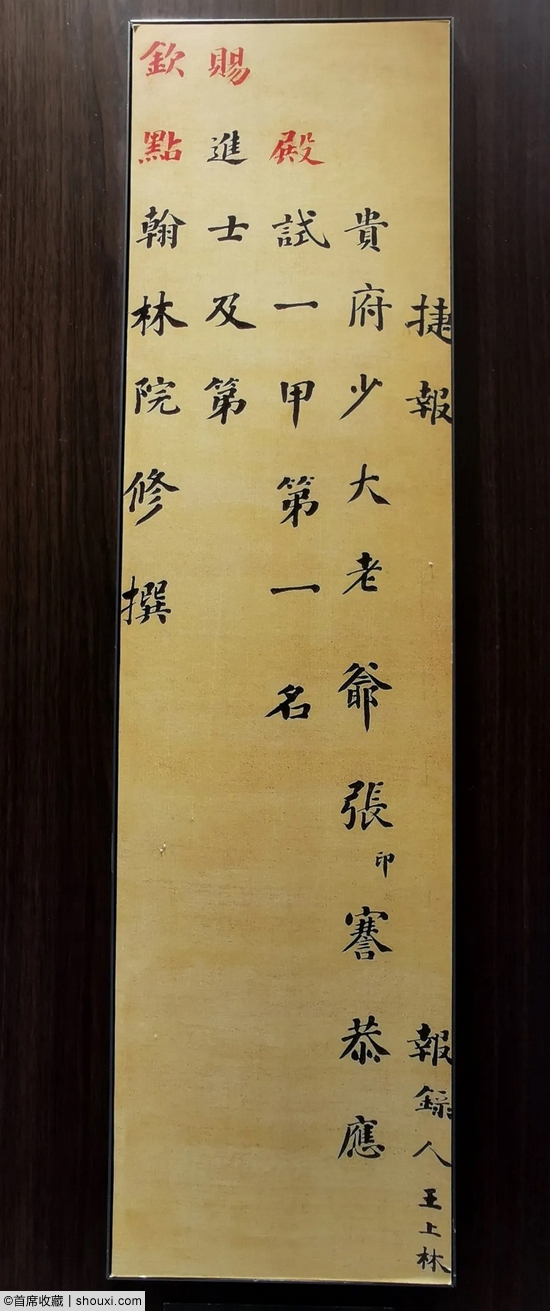 捷報 報錄人王上林
貴府少大老爺張印謇恭應
殿試一甲第一名
賜進士及第
欽點翰林院修撰
©首席收藏 | shouxi.com